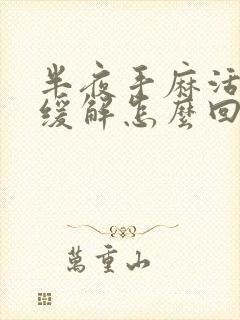 半夜手麻活
缓解怎麼回
萬重山